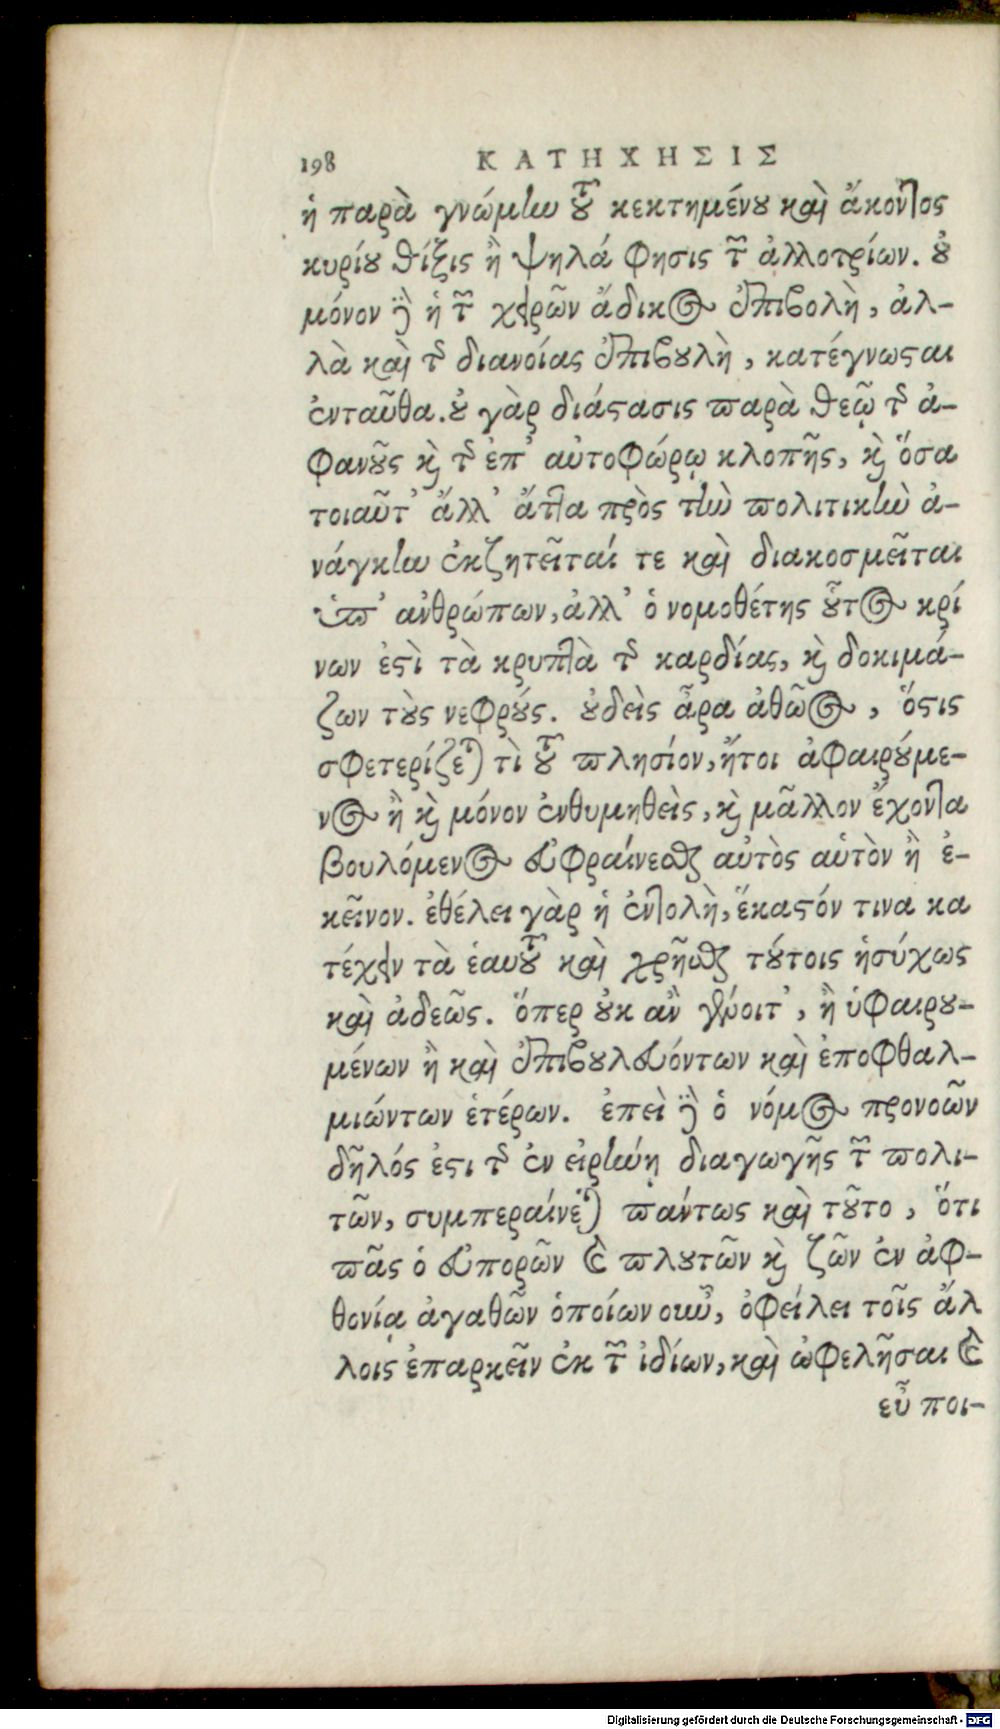 198 ΚΑΤΗΧΗΣΙΣ
ἡ παρὰ γνώμην τοῦ κεκτημένου καὶ ἄκοντος
κυρίου θίξις ἢ ψηλάφησις τῶν ἀλλοτρίων. οὐ
μόνον δὲ ἡ τῶν χειρῶν ἄδικος ἐπιβολὴ, ἀλ-
λὰ καὶ τῆς διανοίας ἐπιβουλὴ, κατέγνωσται
ἐνταῦθα. οὐ γὰρ διάστασις παρὰ θεῷ τῆς ἀ-
φανοῦς καὶ τῆς ἐπ' αὐτοφώρῳ κλοπῆς, καὶ ὅσα
τοιαῦτ' ἄλλ' ἄττα πρὸς τὴν πολιτικὴν ἀ-
νάγκην ἐκζητεῖταί τε καὶ διακοσμεῖται
ὑπ' ἀνθρώπων, ἀλλ' ὁ νομοθέτης οὗτος κρί
νων ἐστὶ τὰ κρυπτὰ τῆς καρδίας, καὶ δοκιμά-
ζων τοὺς νεφρούς. οὐδεὶς ἆρα ἀθῶος, ὅστις
σφετερίζεταί τὶ τοῦ πλησίον, ἤτοι ἀφαιρούμε-
νος ἢ καὶ μόνον ἐνθυμηθεὶς, καὶ μᾶλλον ἔχοντα
βουλόμενος εὐφραίνεσθαι αὐτὸς αὑτὸν ἢ ἐ-
κεῖνον. ἐθέλει γὰρ ἡ ἐντολὴ, ἕκαστόν τινα κα
τέχειν τὰ ἑαυτοῦ καὶ χρῆσθαι τούτοις ἡσύχως
καὶ ἀδεῶς. ὅπερ οὐκ ἂν γένοιτ', ἢ ὑφαιρου-
μένων ἢ καὶ ἐπιβουλευόντων καὶ ἐποφθαλ-
μιώντων ἑτέρων. ἐπεὶ δὲ ὁ νόμος προνοῶν
δῆλός ἐστι τῆς ἐν εἰρήνῃ διαγωγῆς τῶν πολι-
τῶν, συμπεραίνεται πάντως καὶ τοῦτο, ὅτι
πᾶς ὁ εὐπορῶν καὶ πλουτῶν καὶ ζῶν ἐν ἀφ-
θονίᾳ ἀγαθῶν ὁποίων οὖν, ὀφείλει τοῖς ἄλ
λοις ἐπαρκεῖν ἐκ τῶν ἰδίων, καὶ ὠφελῆσαι καὶ
εὖ ποι-
Digitalisierung gefördert durch die Deutsche Forschungsgemeinschaft - DFG